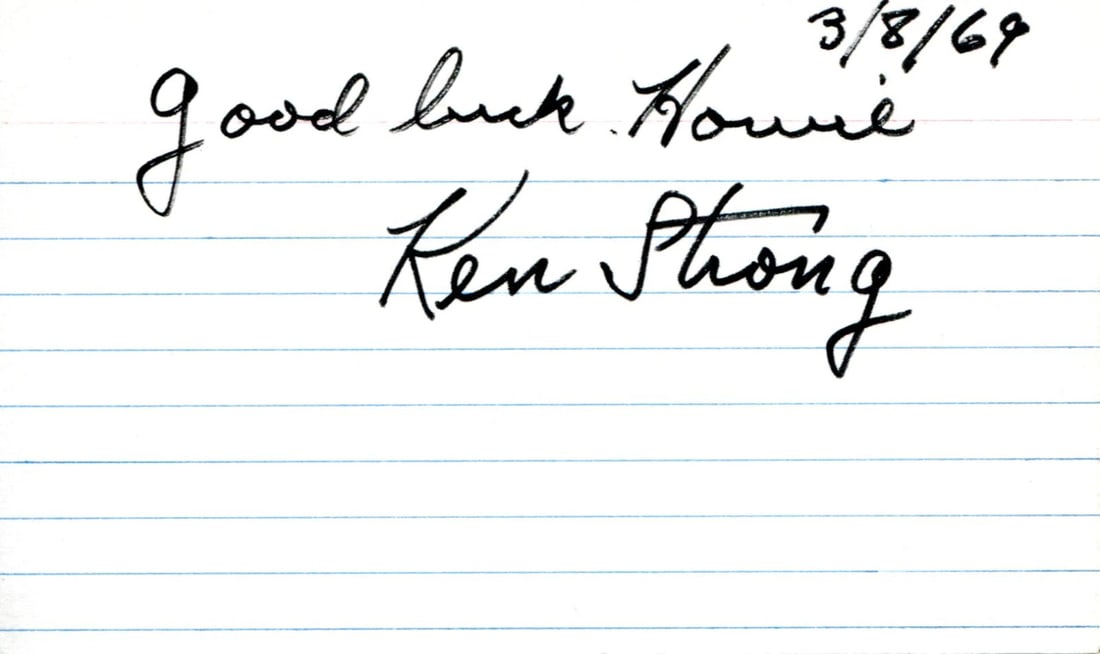 3/8/69
Good luck. Howie
Ken Strong